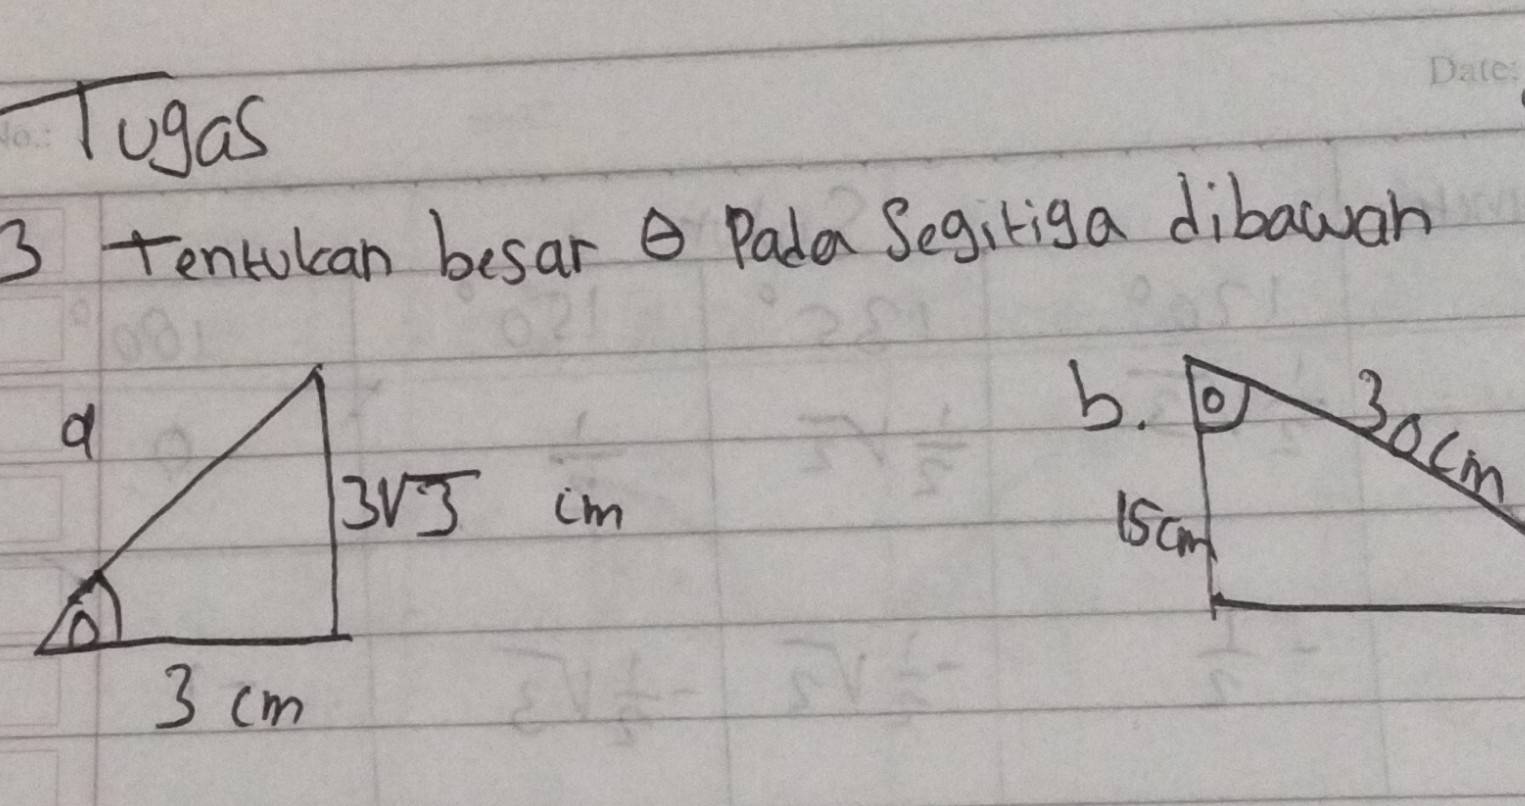 Date:
No.: Tugas
3 Tentukan besar θ Pada Segitiga dibawah
a
3√3 cm
θ
3 cm
b. θ 30cm
15cm